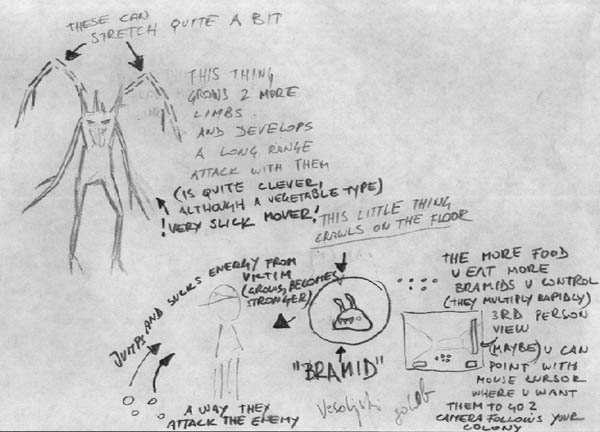 THESE CAN
STRETCH QUITE A BIT
THIS THING
GROWS 2 MORE
LIMBS
AND DEVELOPS
A LONG RANGE
ATTACK WITH THEM
(IS QUITE CLEVER,
ALTHOUGH A VEGETABLE TYPE)
!VERY SLICK MOVER!
THIS LITTLE THING
CRAWLS ON THE FLOOR
JUMPS AND SUCKS ENERGY FROM
VICTIM
(GROWS, BECOMES
STRONGER)
A WAY THEY
ATTACK THE ENEMY
"BRAMID"
THE MORE FOOD
U EAT MORE
BRAMIDS U CONTROL
(THEY MULTIPLY RAPIDLY)
3RD PERSON
VIEW
(MAYBE) U CAN
POINT WITH
MOUSE CURSOR
WHERE U WANT
THEM TO GO 2
CAMERA FOLLOWS YOUR
COLONY